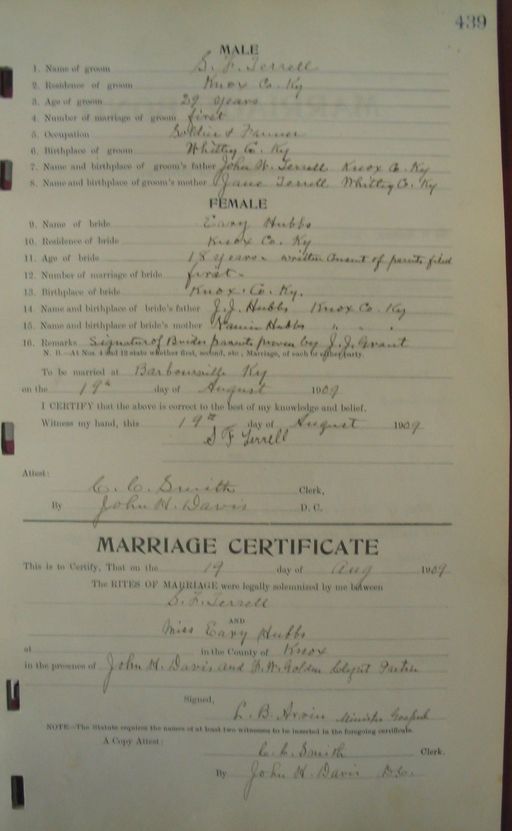 439
MALE
1. Name of groom S. F. Terrell
2. Residence of groom Knox Co. Ky
3. Age of groom 29 years
4. Number of marriage of groom first
5. Occupation Soldier & Farmer
6. Birthplace of groom Whitley Co. Ky
7. Name and birthplace of groom's father John W. Terrell Knox Co. Ky
8. Name and birthplace of groom's mother Jane Terrell Whitley Co. Ky
FEMALE
9. Name of bride Eary Hubbs
10. Residence of bride Knox Co. Ky
11. Age of bride 18 years - written Consent of parents filed
12. Number of marriage of bride first -
13. Birthplace of bride Knox Co. Ky.
14. Name and birthplace of bride's father J. J. Hubbs Knox Co. Ky
15. Name and birthplace of bride's mother Hubbs " " "
16. Remarks Signature of Brides parents proven by J. J. Grant
N. B.—At Nos. 4 and 12 state whether first, second, etc., Marriage, of each or either party.
To be married at Barbourville Ky
on the 19th day of August 1909
I CERTIFY that the above is correct to the best of my knowledge and belief.
Witness my hand, this 19th day of August 1909
S F Terrell
Attest:
C. C. Smith Clerk,
By John H. Davis D. C.
MARRIAGE CERTIFICATE
This is to Certify, That on the 19 day of Aug 1909
The RITES OF MARRIAGE were legally solemnized by me between
S. F. Terrell
AND
Miss Eary Hubbs
at in the County of Knox
in the presence of John H. Davis and W. Golden
Signed,
L. B. Arvin Minister Gospel
NOTE—The Statute requires the names of at least two witnesses to be inserted in the foregoing certificate.
A Copy Attest: C. C. Smith Clerk.
By John H. Davis D.C.